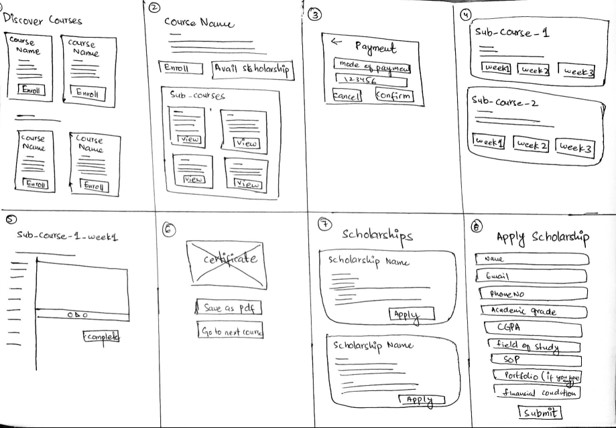 Discover Courses
Course Name
Course Name
Enroll
Enroll
Course Name
Course Name
Enroll
Enroll
2
Course Name
Enroll
Avail scholarship
Sub-courses
View
View
View
View
3
← Payment
mode of payment
123456
Cancel
Confirm
4
Sub-course-1
week1
week2
week3
Sub-course-2
week1
week2
week3
5
Sub-course-1-week1
complete
6
certificate
Save as pdf
Go to next course
7
Scholarships
Scholarship Name
Apply
Scholarship Name
Apply
8
Apply Scholarship
Name
Email
Phone No
Academic grade
CGPA
field of study
SOP
Portfolio (if
financial condition
Submit